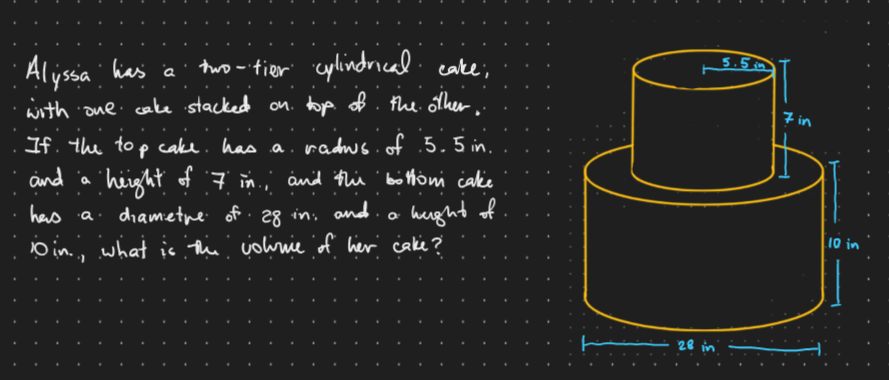 Alyssa has a two-tier cylindrical cake,
with one cake stacked on top of the other.
If the top cake has a radius of 5.5 in.
and a height of 7 in., and the bottom cake
has a diametre of 28 in. and a height of
10 in., what is the volume of her cake?
5.5 in
7 in
10 in
28 in